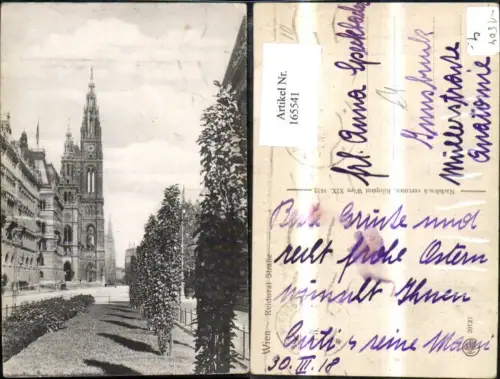 Artikel Nr.
165541
Frl. Anna
Innsbruck
Müllerstraße
Anatomie
Nachdruck verboten, Kilophot Wien XIX. 1472
Wien - Reichsrat-Straße
Beste Grüße und
recht frohe Ostern
wünscht Ihnen
Curti u. seine Mami
30. III. 18